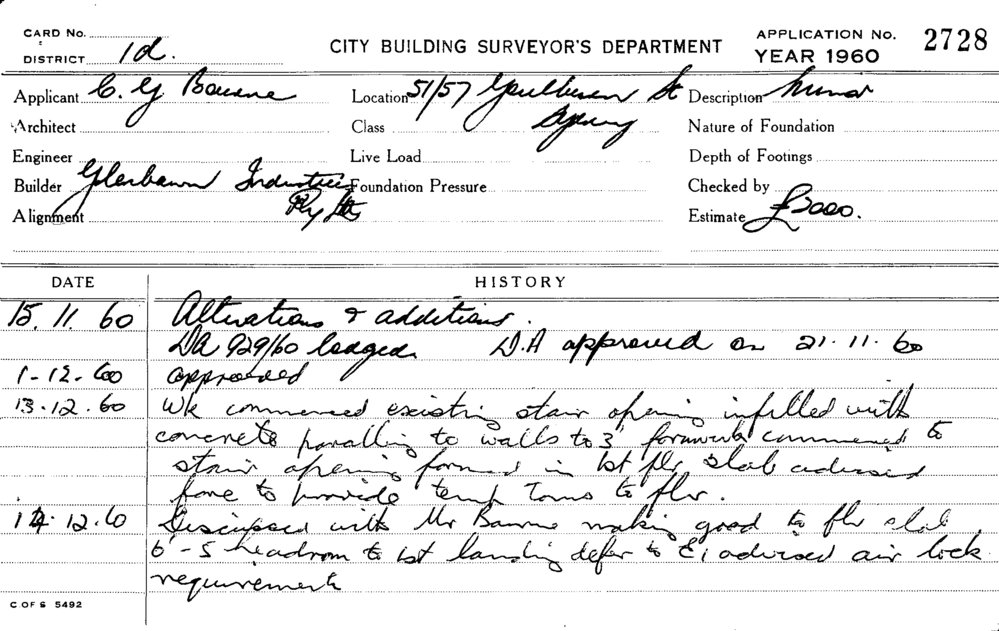 CARD No.
DISTRICT 1d.
CITY BUILDING SURVEYOR'S DEPARTMENT
APPLICATION No. 2728
YEAR 1960
Applicant C. G Bourne
Location 51/57 Goulburn St
Sydney
Description Minor
Architect
Class
Nature of Foundation
Engineer
Live Load
Depth of Footings
Builder Glenbawn Industries
Pty Ltd
Foundation Pressure
Checked by
Alignment
Estimate £3000.
DATE HISTORY
15. 11. 60 Alterations & additions.
DA 929/60 lodged. D.A approved on 21.11.60
1-12-60 approved
13.12.60 Wk commenced existing stair opening infilled with
concrete to walls to 3' formwork commenced to
stair opening formed in 1st flr slab advised
fore to provide temp Toms to flr.
14.12.60 Discussed with Mr Bourne making good to flr slab
6'-5 headroom to 1st landing defer to E, advised air lock
requirement
C OF S 5492